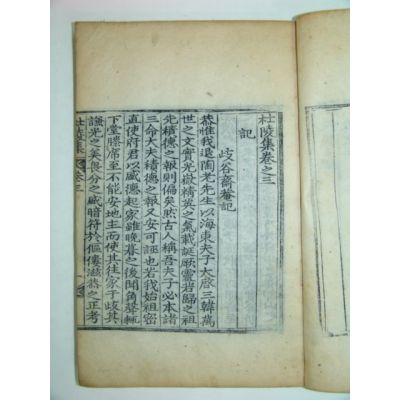 杜陵集卷之三
記
岐谷齋菴記
恭惟我退陶老先生以海東夫子大啓三韓萬
世之文實光嶽精英之氣載誕厥靈若歸之祖
先積德之報則偏矣然古人稱吾夫子必本諸
三命大夫積德之報又安可誣也若我始祖密
直使府君以威德起家雖晚暮之後聞角聲輒
下堂席至不能安地主而使其往家于歧其
謙光之美畏分之誠暗符於傴僂滋恭之正考
杜陵集 卷三 一